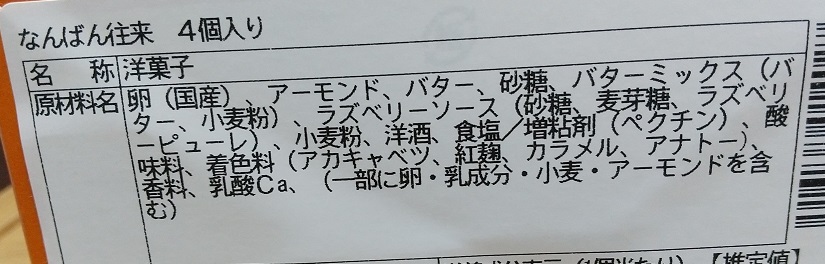 なんばん往来　４個入り
名　称 洋菓子
原材料名 卵（国産）、アーモンド、バター、砂糖、バターミックス（バ
ター、小麦粉）、ラズベリーソース（砂糖、麦芽糖、ラズベリ
ーピューレ）、小麦粉、洋酒、食塩／増粘剤（ペクチン）、酸
味料、着色料（アカキャベツ、紅麹、カラメル、アナトー）、
香料、乳酸Ca、（一部に卵・乳成分・小麦・アーモンドを含
む）
(1個当たり)【推定値】